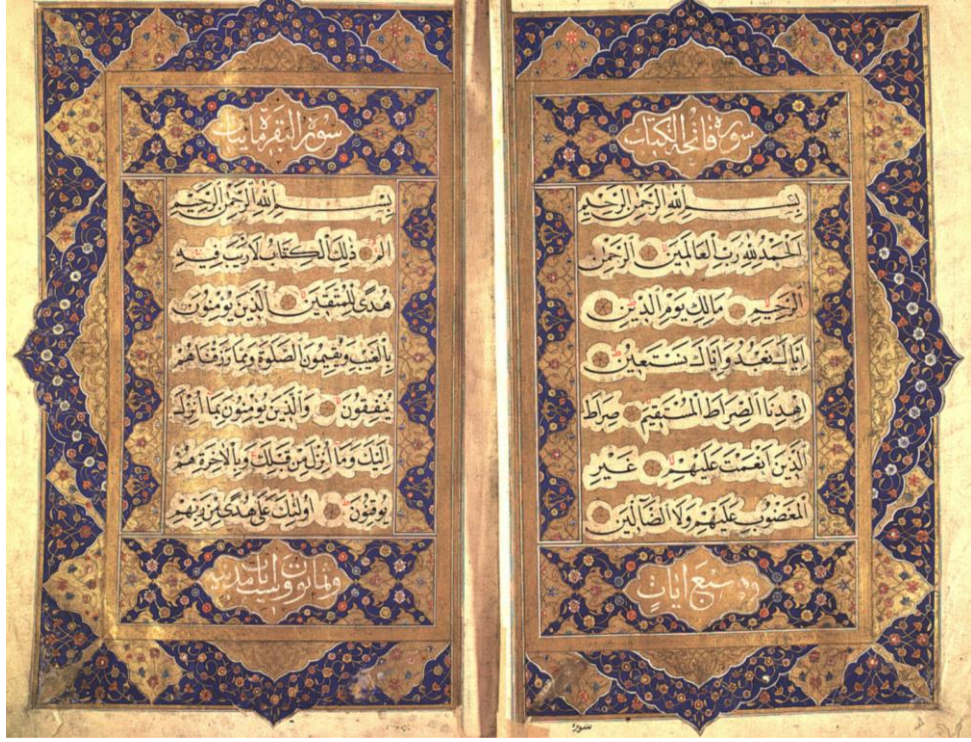 سورة فاتحة الكتاب
بِسْمِ اللَّهِ الرَّحْمٰنِ الرَّحِيمِ
اَلْحَمْدُ لِلَّهِ رَبِّ الْعَالَمِينَ الرَّحْمٰنِ
الرَّحِيمِ مَالِكِ يَوْمِ الدِّينِ
اِيَّاكَ نَعْبُدُ وَاِيَّاكَ نَسْتَعِينُ
اِهْدِنَا الصِّرَاطَ الْمُسْتَقِيمَ صِرَاطَ
الَّذِينَ اَنْعَمْتَ عَلَيْهِمْ غَيْرِ
الْمَغْضُوبِ عَلَيْهِمْ وَلَا الضَّآلِّينَ
سبع ايات
سورة البقرة مايتان
بِسْمِ اللَّهِ الرَّحْمٰنِ الرَّحِيمِ
الم ذٰلِكَ الْكِتَابُ لَا رَيْبَ فِيهِ
هُدًى لِلْمُتَّقِينَ الَّذِينَ يُؤْمِنُونَ
بِالْغَيْبِ وَيُقِيمُونَ الصَّلٰوةَ وَمِمَّا رَزَقْنَاهُمْ
يُنْفِقُونَ وَالَّذِينَ يُؤْمِنُونَ بِمَا اُنْزِلَ
اِلَيْكَ وَمَا اُنْزِلَ مِنْ قَبْلِكَ وَبِالْاٰخِرَةِ هُمْ
يُوقِنُونَ اُولٰئِكَ عَلٰى هُدًى مِنْ رَبِّهِمْ
وثمانون وست ايات مدنية
سورة